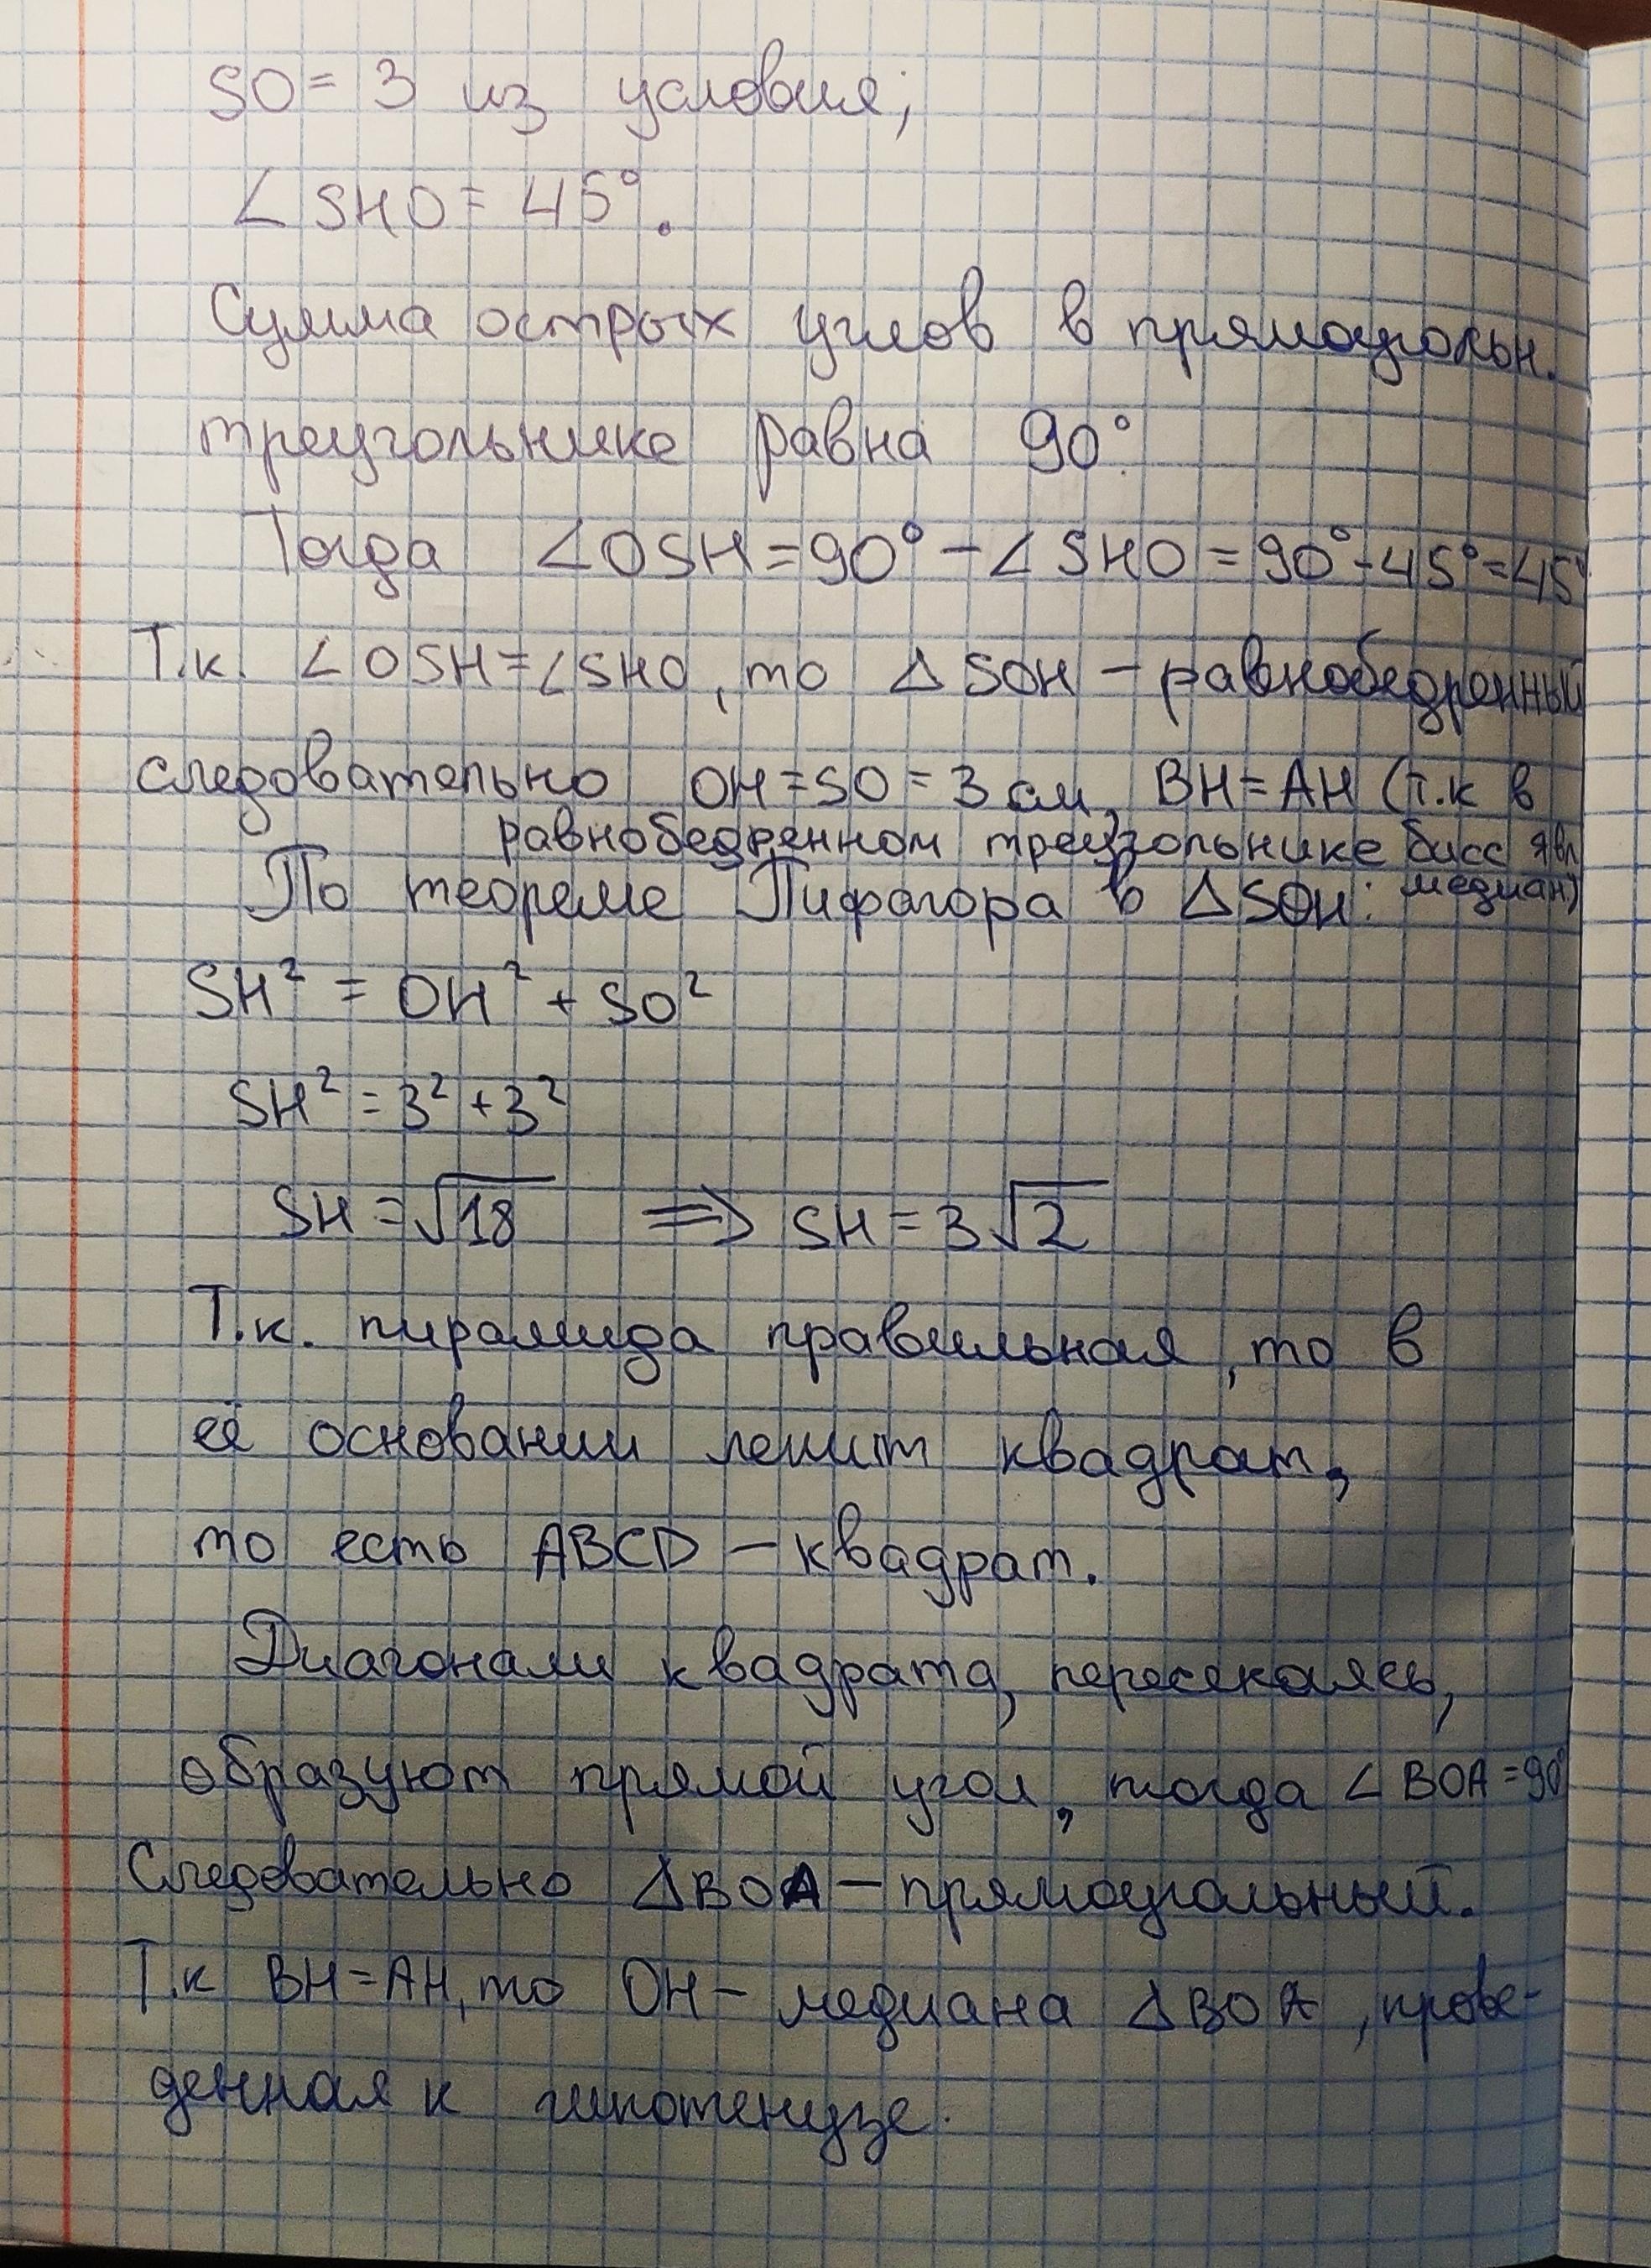 SO = 3 из условия;
∠SHO = 45°.
Сумма острых углов в прямоугольн.
треугольнике равна 90°.
Тогда ∠OSH = 90° - ∠SHO = 90° - 45° = 45°
Т.к. ∠OSH = ∠SHO, то △SOH – равнобедренный
следовательно OH = SO = 3 см, BH = AH (т.к в
равнобедренном треугольнике бисс явл
медиан)
По теореме Пифагора в △SOH:
SH² = OH² + SO²
SH² = 3² + 3²
SH = √18 ⇒ SH = 3√2
Т.к. пирамида правильная, то в
её основании лежит квадрат,
то есть ABCD – квадрат.
Диагонали квадрата, пересекаясь,
образуют прямой угол, тогда ∠BOA = 90°
Следовательно △BOA – прямоугольный.
Т.к BH = AH, то OH – медиана △BOA, прове-
денная к гипотенузе.